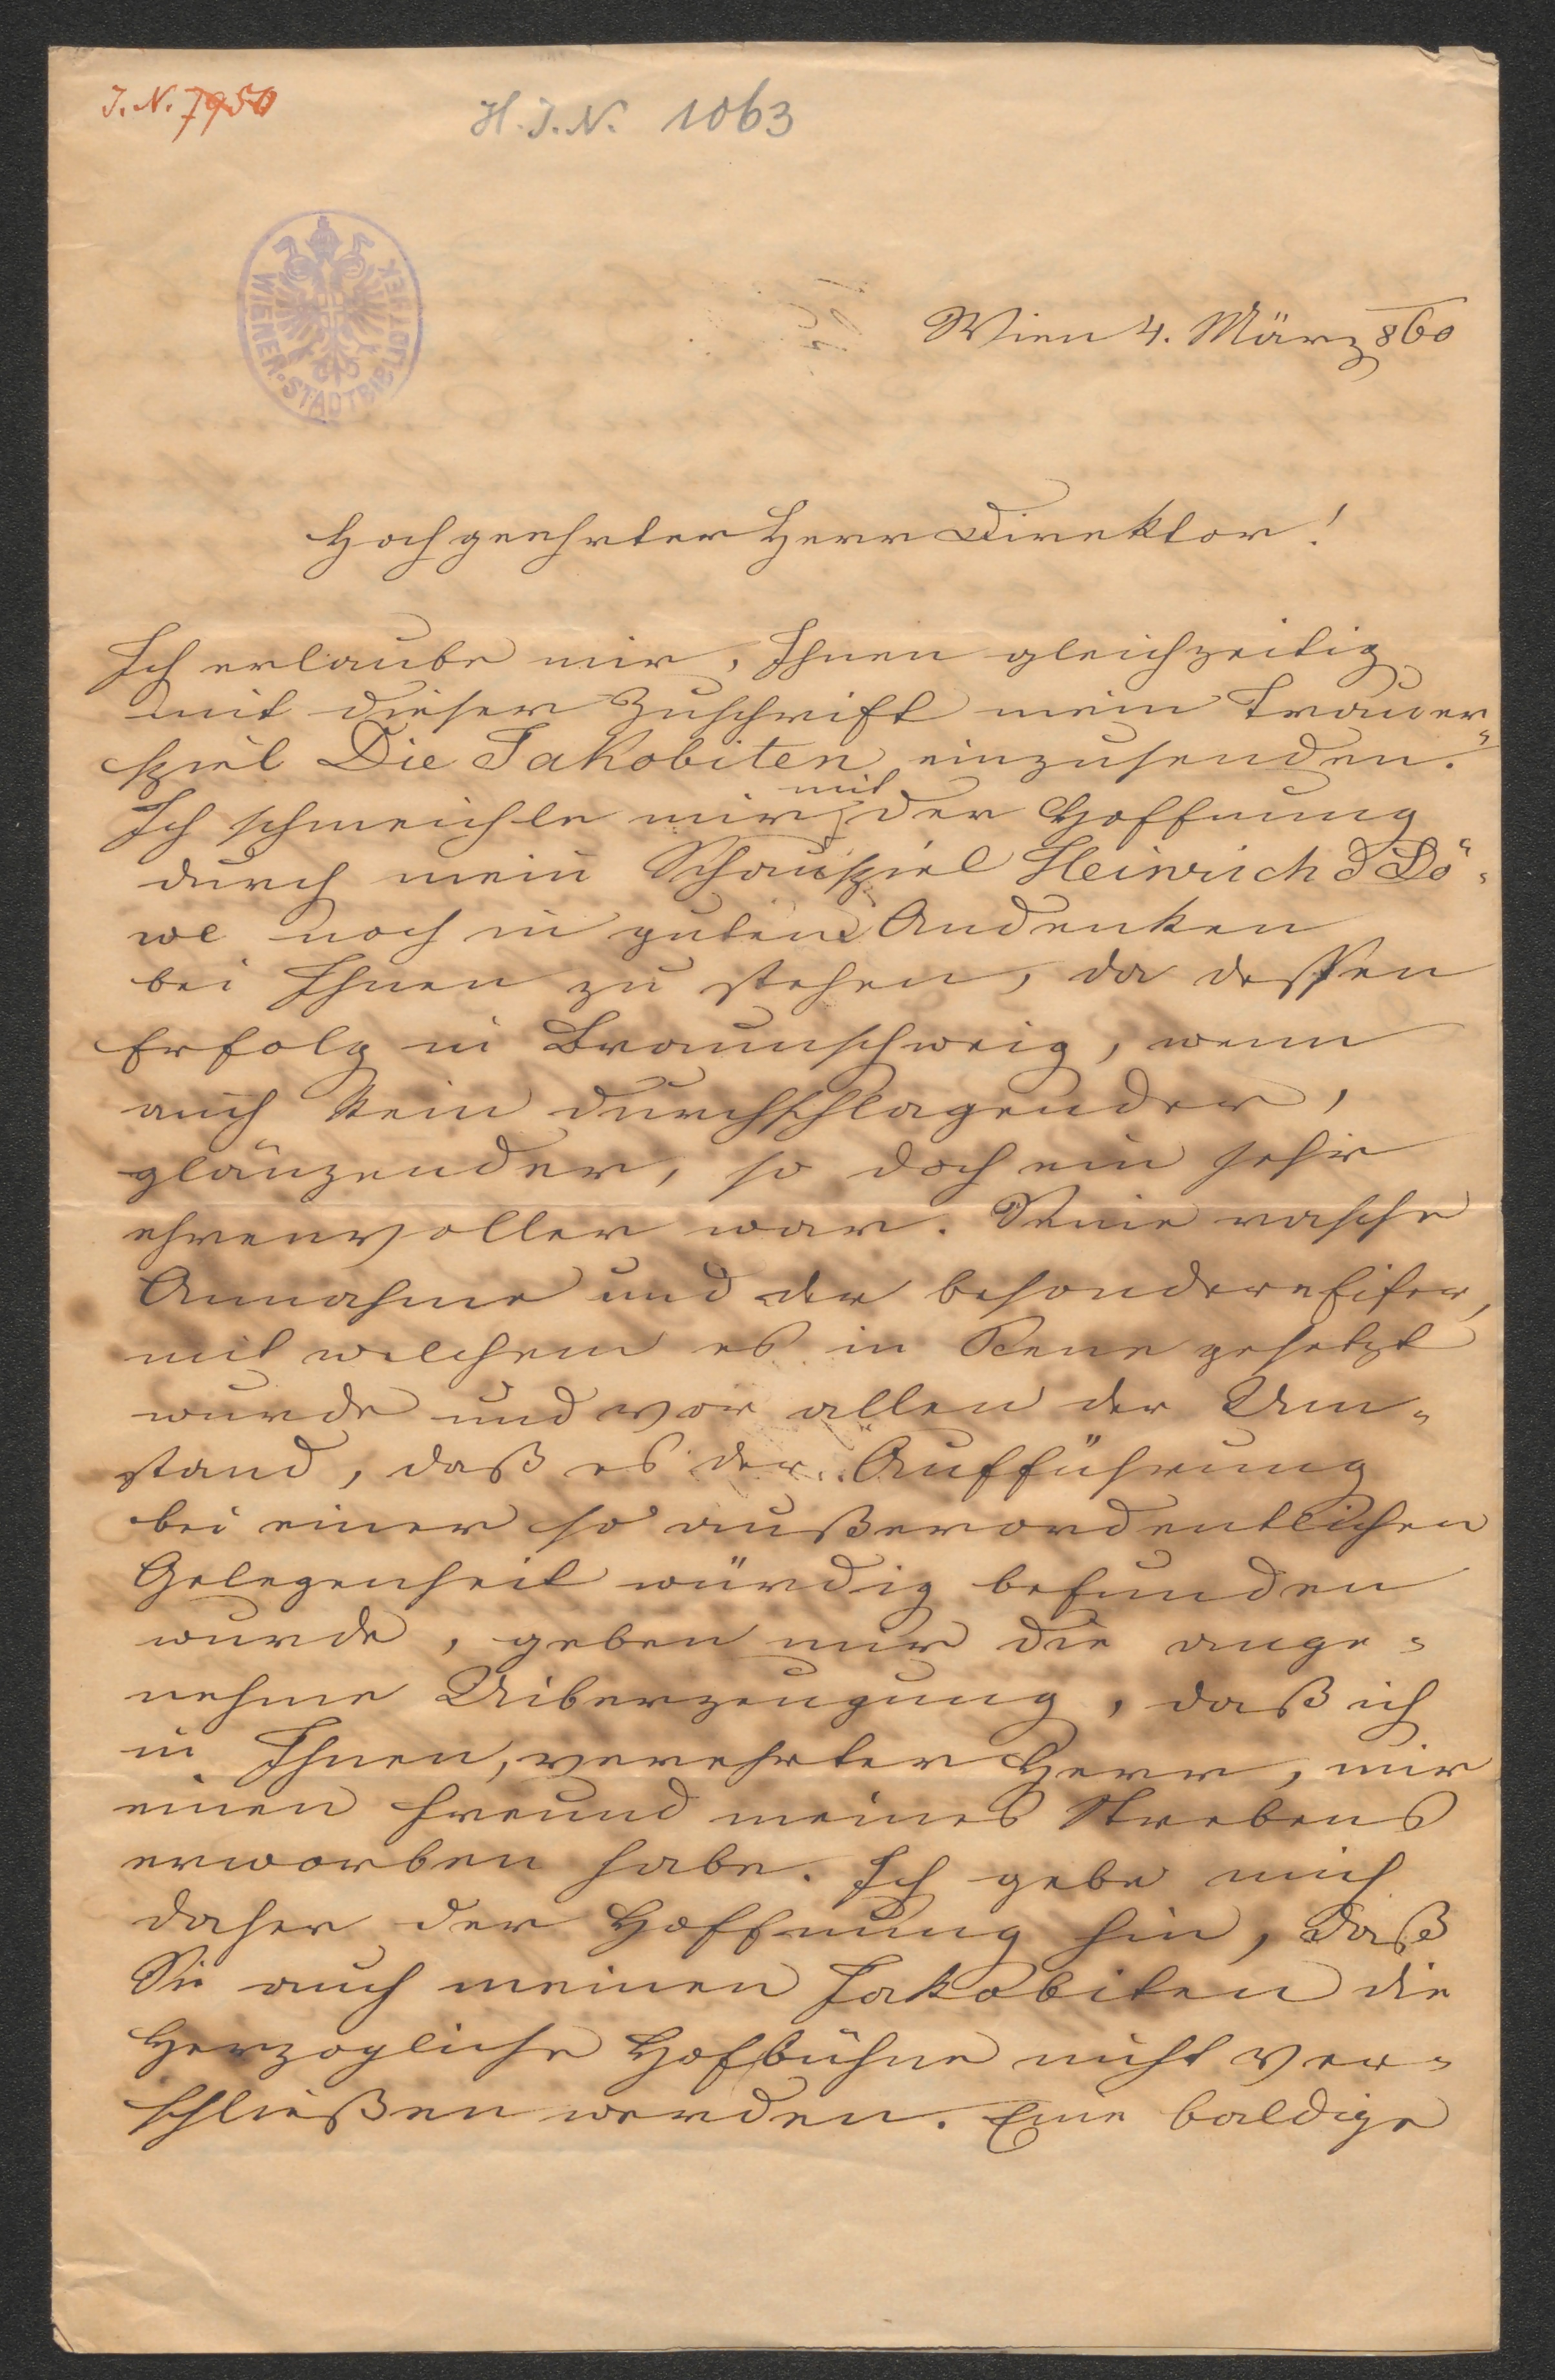 J. N. 7950
H. J. N. 1063
WIENER · STADTBIBLIOTHEK
Wien 4. März 860
Hochgeehrter Herr Direktor!
Ich erlaube mir, Ihnen gleichzeitig
mit dieser Zuschrift mein Trauer=
spiel Die Jakobiten einzusenden.
Ich schmeichle mir mit der Hoffnung
durch mein Schauspiel Heinrich d Lö=
we noch in gutem Andenken
bei Ihnen zu stehen, da dessen
Erfolg in Braunschweig, wenn
auch kein durchschlagender,
glänzender, so doch ein sehr
ehrenvoller war. Seine rasche
Annahme und der besondere Eifer,
mit welchem es in Scene gesetzt
wurde und vor allen der Um=
stand, daß es der Aufführung
bei einer so außerordentlichen
Gelegenheit würdig befunden
wurde, geben mir die ange=
nehme Uiberzeugung, daß ich
in Ihnen, verehrter Herr, mir
einen Freund meines Strebens
erworben habe. Ich gebe mich
daher der Hoffnung hin, daß
Sie auch meinen Jakobiten die
Herzogliche Hofbühne nicht ver=
schließen werden. Eine baldige